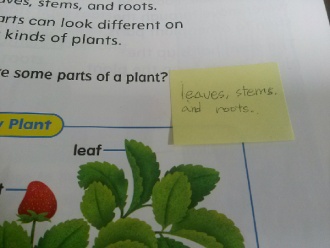 ves, stems, and roots.
arts can look different on
kinds of plants.
re some parts of a plant?
leaves, stems.
and roots.
y Plant
leaf
t